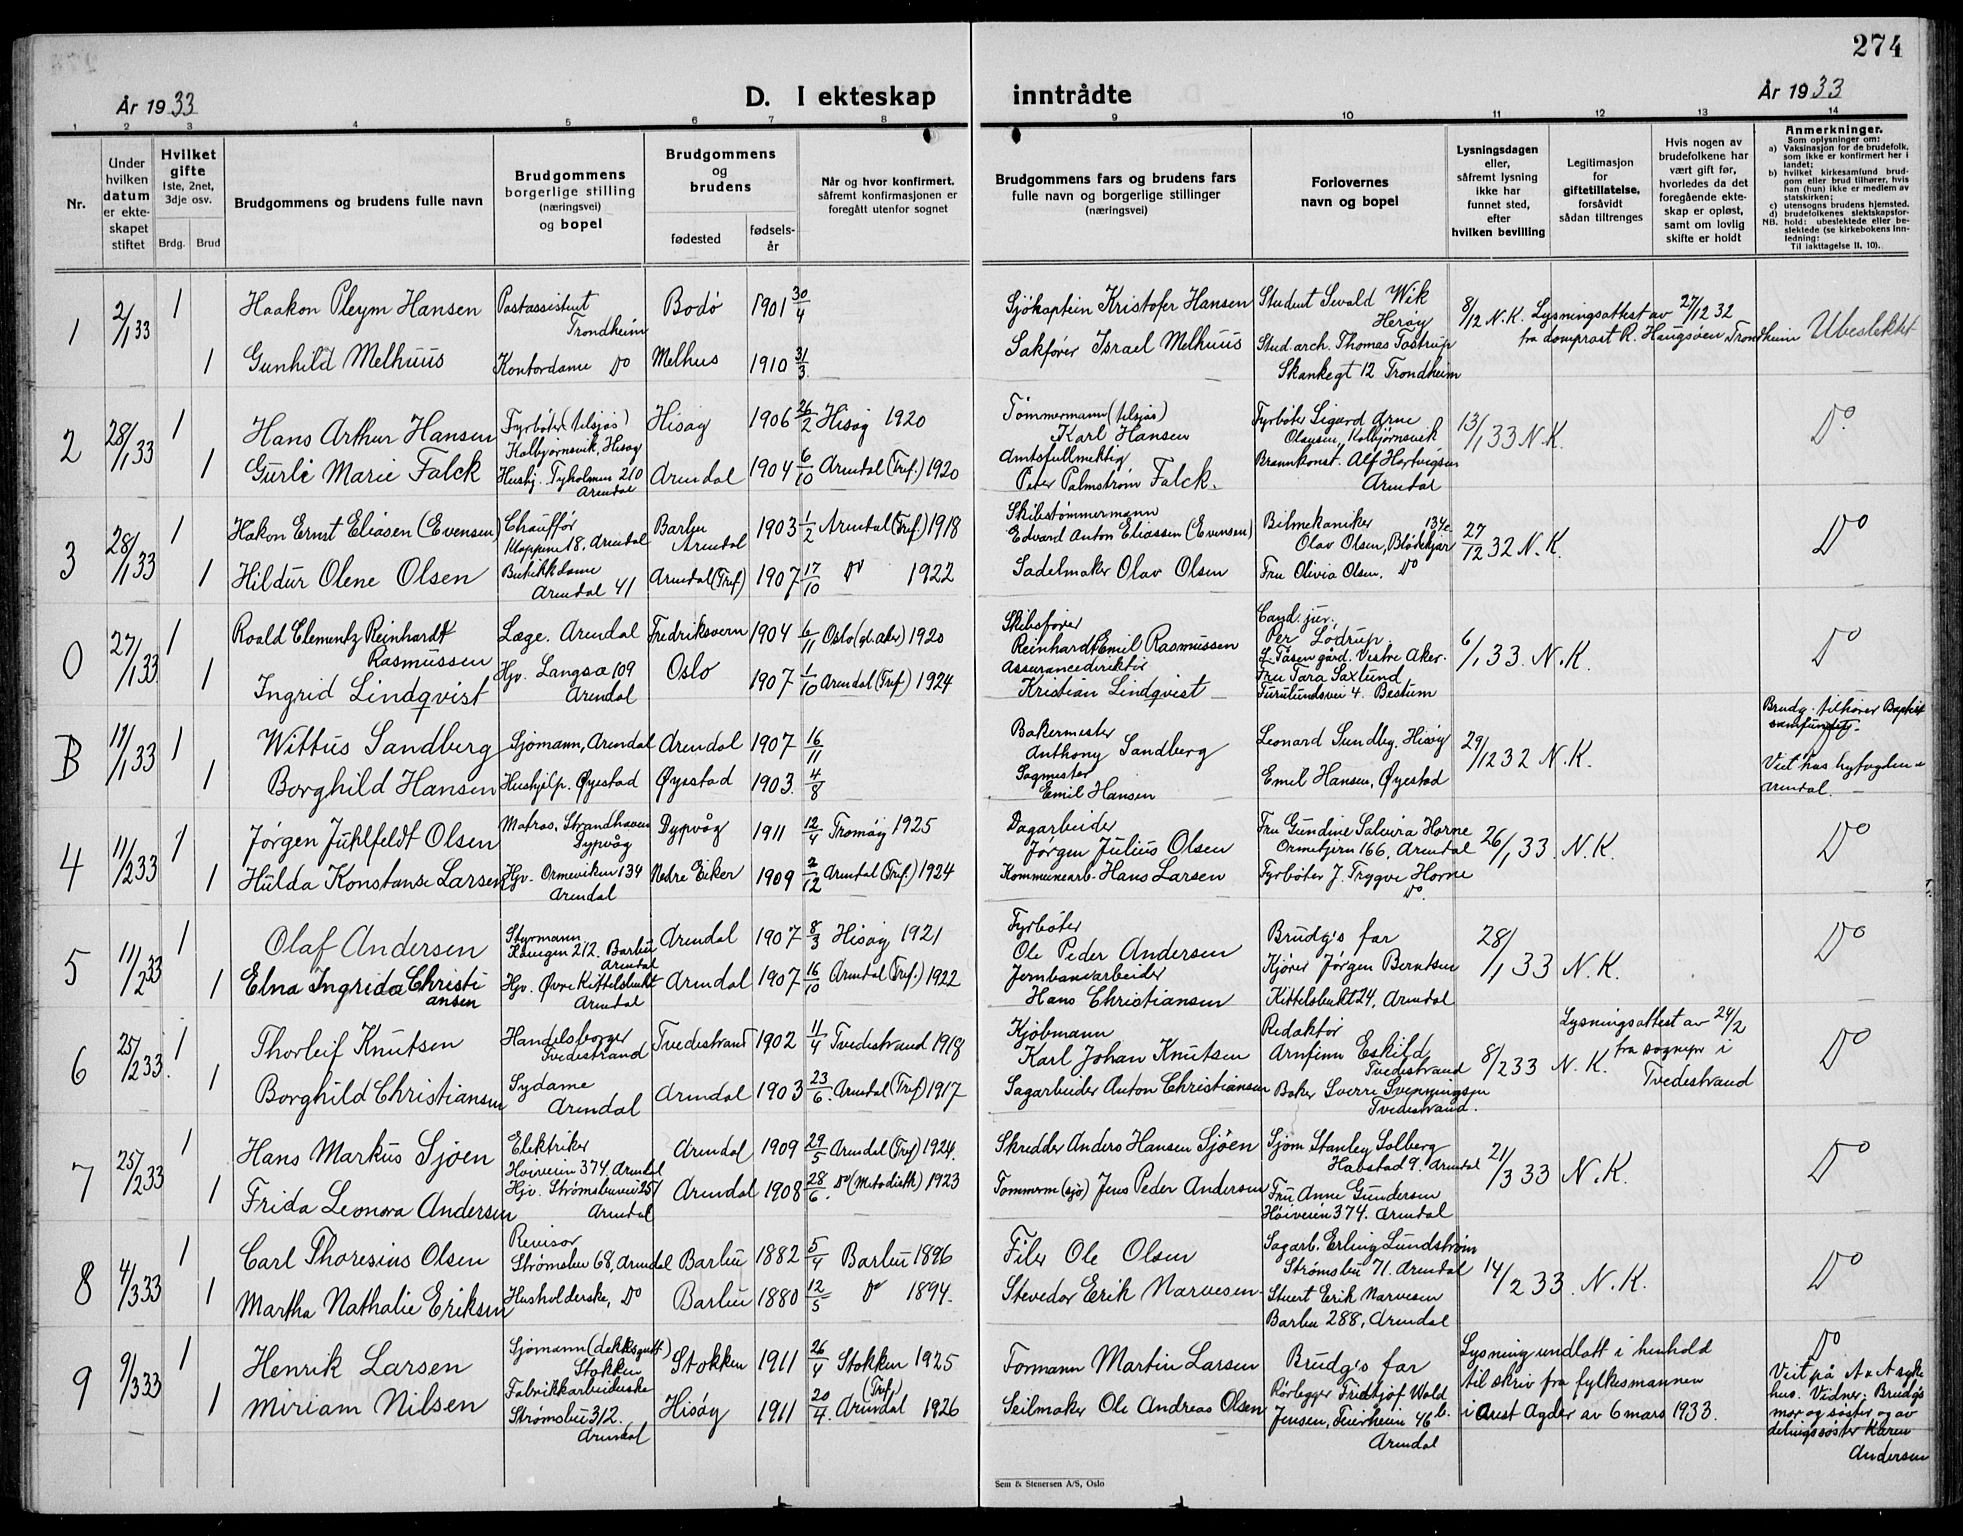 274
År 1933
D. I ekteskap inntrådte
År 1933
1 2 3 4 5 6 7 8 9 10 11 12 13 14
Nr.
Under hvilken datum er ekteskapet stiftet
Hvilket gifte
1ste, 2net, 3dje osv.
Brdg. Brud
Brudgommens og brudens fulle navn
Brudgommens borgerlige stilling (næringsvei) og bopel
Brudgommens og brudens
fødested
fødselsår
Når og hvor konfirmert, såfremt konfirmasjonen er foregått utenfor sognet
Brudgommens fars og brudens fars fulle navn og borgerlige stillinger (næringsvei)
Forlovernes navn og bopel
Lysningsdagen eller, såfremt lysning ikke har funnet sted, efter hvilken bevilling
Legitimasjon for giftetillatelse, forsåvidt sådan tiltrenges
Hvis nogen av brudefolkene har vært gift før, hvorledes da det foregående ekteskap er opløst, samt om lovlig skifte er holdt
Anmerkninger.
Som oplysninger om:
a) Vaksinasjon for de brudefolk, som ikke er konfirmert her i landet;
b) hvilket kirkesamfund brudgom eller brud tilhører, hvis han (hun) ikke er medlem av statskirken;
c) utensogns brudens hjemsted.
d) brudefolkenes slektskapsforhold: ubeslektede eller beslektede (se kirkebokens innledning:
NB. Til iakttagelse II, 10).
1 2/1 33 1 Haakon Pleym Hansen Postassistent Trondheim Bodø 1901 30/4 Sjökaptein Kristofer Hansen Student Sevald Wik Herøy 8/12 N.K. Lysningsattest av 27/12 32 fra domprost R. Haugsöen Trondheim Ubeslektet
1 Gunhild Melhuus Kontordame Do Melhus 1910 31/3 Sakfører Israel Melhuus Stud. arch. Thomas Tostrup Skankegt 12 Trondheim
2 28/1 33 1 Hans Arthur Hansen Fyrböter (tilsjøs) Kolbjørnsvik, Hisøy Hisøy 1906 26/2 Hisøy 1920 Tømmermann (tilsjøs) Karl Hansen Fyrböter Sigurd Arne Olausen, Kolbjørnsvik 13/1 33 N.K. Do
1 Gurli Marie Falck Hushj. Tyholmen 210 Arendal Arendal 1904 6/10 Arendal (Tref.) 1920 Amtsfullmektig Peter Palmstrøm Falck. Brannkonst. Alf Hartvigsen Arendal
3 28/1 33 1 Håkon Ernst Eliasen (Evensen) Chauffør Kloppene 18, Arendal Barbu Arendal 1903 1/2 Arendal (Tref) 1918 Skibstømmermann Edvard Anton Eliassen (Evensen) Bilmekaniker Olav Olsen, Blødekjær 134c 27/12 32 N.K. Do
1 Hildur Olene Olsen Butikkdame Arendal 41 Arendal (Tref) 1907 17/10 Do 1922 Sadelmaker Olav Olsen Fru Olivia Olsen. Do
0 27/1 33 1 Roald Clementz Reinhardt Rasmussen Læge. Arendal Fredriksvern 1904 6/11 Oslo (gl. aker) 1920 Skibsfører Reinhardt Emil Rasmussen Cand. jur. Per Lödrup. Tåsen gård. Vestre Aker. 6/1 33. N.K. Do
1 Ingrid Lindqvist Hjv. Langsæ 109 Arendal Oslo 1907 1/10 Arendal (Tref) 1924 Assurancedirektör Kristian Lindqvist Fru Tara Saxlund, Furulundsvei 4. Bestum
B 11/1 33 1 Wittus Sandberg Sjømann, Arendal Arendal 1907 16/11 Bakermester Anthony Sandberg Leonard Sundby. Hisøy 29/12 32 N.K. Brudg. tilhører Baptist samfundet.
1 Borghild Hansen Hushjelp. Øyestad Øyestad 1903. 4/8 Sagmester Emil Hansen Emil Hansen, Øyestad Viet hos byfogden i Arendal.
4 11/2 33 1 Jørgen Juhlfeldt Olsen Matros, Strandhaven Dypvåg Dypvåg 1911 12/4 Tromøy 1925 Dagarbeider Jørgen Julius Olsen Fru Gundine Salvira Horne Ormetjern 166, Arendal 26/1 33 N.K. Do
1 Hulda Konstanse Larsen Hjv. Ormeviken 134 Arendal Nedre Eiker 1909 2/12 Arendal (Tref.) 1924 Kommunearb. Hans Larsen Fyrböter J. Trygve Horne Do.
5 11/2 33 1 Olaf Andersen Styrmann Havegen 212. Barbu Arendal Arendal 1907 8/3 Hisøy 1921 Fyrböter Ole Peder Andersen Brudg's far 28/1 33 N.K. Do
1 Elna Ingrida Christiansen Hjv. Øvre Kittelsbukt Arendal Arendal 1907 16/10 Arendal (Tref.) 1922 Jernbanearbeider Hans Christiansen Kjörer Jørgen Berntsen Kittelsbukt 24, Arendal
6 25/2 33. 1 Thorleif Knutsen Handelsborger Tvedestrand Tvedestrand 1902 11/4 Tvedestrand 1918 Kjöbmann Karl Johan Knutsen Redaktör Arnfinn Eskild, Tvedestrand 8/2 33 N.K. Lysningsattest av 24/2 fra sognepr i Tvedestrand Do
1 Borghild Christiansen Sydame Arendal Arendal 1903 23/6. Arendal (Tref) 1917 Sagarbeider Anton Christiansen Baker Sverre Svenningsen Tvedestrand.
7 25/2 33 1 Hans Markus Sjøen Elektriker Høiveien 374. Arendal Arendal 1909 29/5 Arendal (Tref) 1924. Skredder Anders Hansen Sjøen Sjøm Stanley Solberg Havstad 9. Arendal 21/3 33 N.K. Do
1 Frida Leonora Andersen Hjv. Strømsbuvei 257 Arendal Arendal 1908 28/6. Do (Metodistk) 1923 Tømmerm (sjø) Jens Peder Andersen Fru Anne Gundersen Høiveien 374. Arendal
8 4/3 33 1 Carl Thoresius Olsen Revisor Strømsbu 68, Arendal Barbu 1882 5/4 Barbu 1896 Filer Ole Olsen Sagarb. Erling Lundstrøm Strømsbu 71. Arendal 14/2 33. N.K. Do
1 Martha Nathalie Eriksen Husholderske, Do Barbu 1880 12/5 Do 1894. Stevedor Erik Narvesen Stuert Erik Narvesen Barbu 288, Arendal
9 9/3 33 1 Henrik Larsen Sjømann (dekksgutt) Stokken Stokken 1911 26/4 Stokken 1925 Formann Martin Larsen Brudg's far Lysning undlatt i henhold til skriv fra fylkesmannen i Aust Agder av 6 mars 1933. Do
1 Miriam Nilsen Fabrikkarbeiderske Strømsbu 312. Arendal Hisøy 1911 20/4. Arendal (Tref) 1926 Seilmaker Ole Andreas Olsen Rørlegger Fridtjof Wold Jensen, Feierheia 46b. Arendal Viet på A. A. syke hus. Vidner: Brudg's mor og søster og av delingssøster Karen Andersen
Sem & Stenersen A/S, Oslo